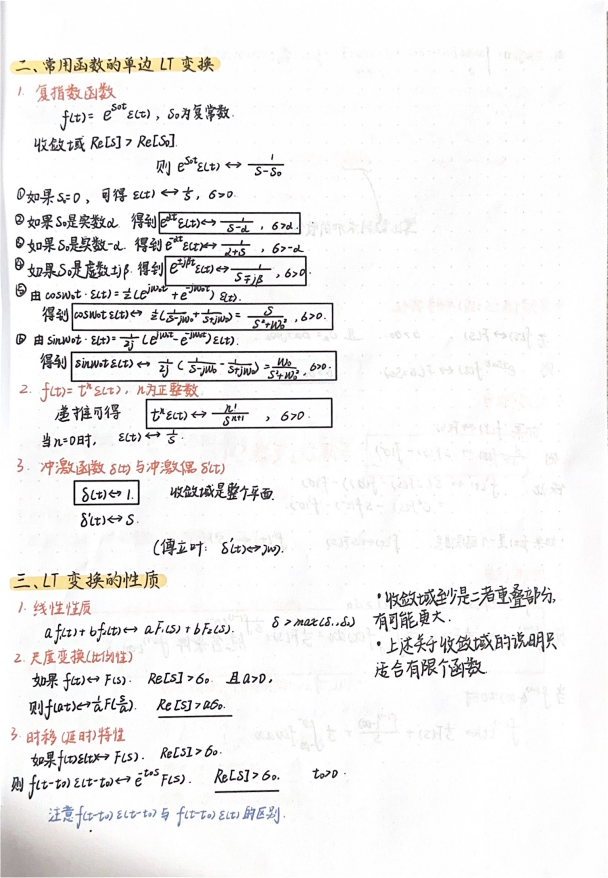 二、常用函数的单边 LT 变换
1. 复指数函数
f(t) = e^{s₀t}ε(t), s₀为复常数.
收敛域 Re[s] > Re[s₀].
则 e^{s₀t}ε(t) ↔ 1/(s-s₀)
①如果s₀=0, 可得 ε(t) ↔ 1/s, σ>0.
②如果s₀是实数α. 得到 e^{αt}ε(t) ↔ 1/(s-α), σ>α.
③如果s₀是实数-α. 得到 e^{-αt}ε(t) ↔ 1/(α+s), σ>-α
④如果s₀是虚数±jβ. 得到 e^{±jβt}ε(t) ↔ 1/(s∓jβ), σ>0.
⑤由 cosω₀t·ε(t) = 1/2(e^{jω₀t}+e^{-jω₀t})ε(t).
得到 cosω₀tε(t) ↔ 1/2(1/(s-jω₀)+1/(s+jω₀)) = s/(s²+ω₀²), σ>0.
⑥由 sinω₀t·ε(t) = 1/2j(e^{jω₀t}-e^{-jω₀t})ε(t).
得到 sinω₀tε(t) ↔ 1/2j(1/(s-jω₀)-1/(s+jω₀)) = ω₀/(s²+ω₀²), σ>0.
2. f(t) = tⁿε(t), n为正整数
递推可得 tⁿε(t) ↔ n!/s^{n+1}, σ>0
当n=0时, ε(t) ↔ 1/s.
3. 冲激函数 δ(t)与冲激偶 δ'(t)
δ(t) ↔ 1. 收敛域是整个平面.
δ'(t) ↔ s.
(傅立叶: δ'(t) ↔ jω).
三、LT 变换的性质
1. 线性性质
af₁(t)+bf₂(t) ↔ aF₁(s)+bF₂(s). σ>max(σ₁,σ₂)
·收敛域至少是二者重叠部分,
有可能更大.
·上述关于收敛域的说明只
适合有限个函数
2. 尺度变换(比例性)
如果 f(t) ↔ F(s). Re[s]>σ₀. 且a>0,
则f(at) ↔ 1/a F(s/a). Re[s]>aσ₀.
3. 时移(延时)特性
如果f(t)ε(t) ↔ F(s). Re[s]>σ₀.
则 f(t-t₀)ε(t-t₀) ↔ e^{-t₀s}F(s). Re[s]>σ₀. t₀>0.
注意f(t-t₀)ε(t-t₀)与 f(t-t₀)ε(t)的区别.